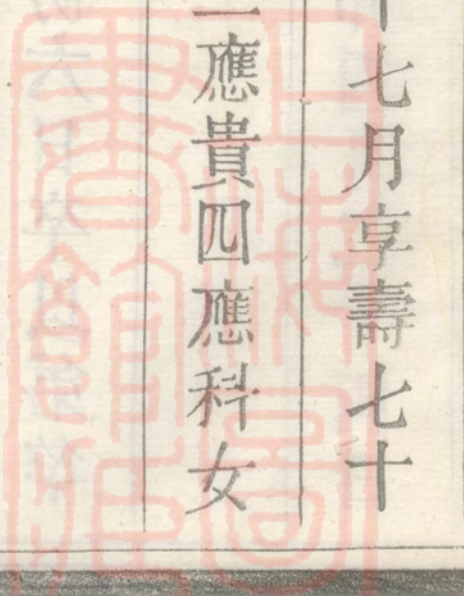 七月享壽七十
應貴四應科女